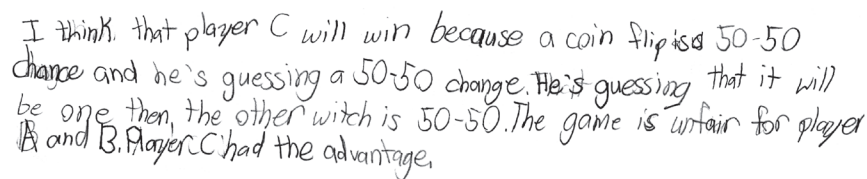 I think that player C will win because a coin flip is a 50-50
chance and he's guessing a 50-50 change. He's guessing that it will
be one then, the other witch is 50-50. The game is unfair for player
A and B. Player C had the advantage.